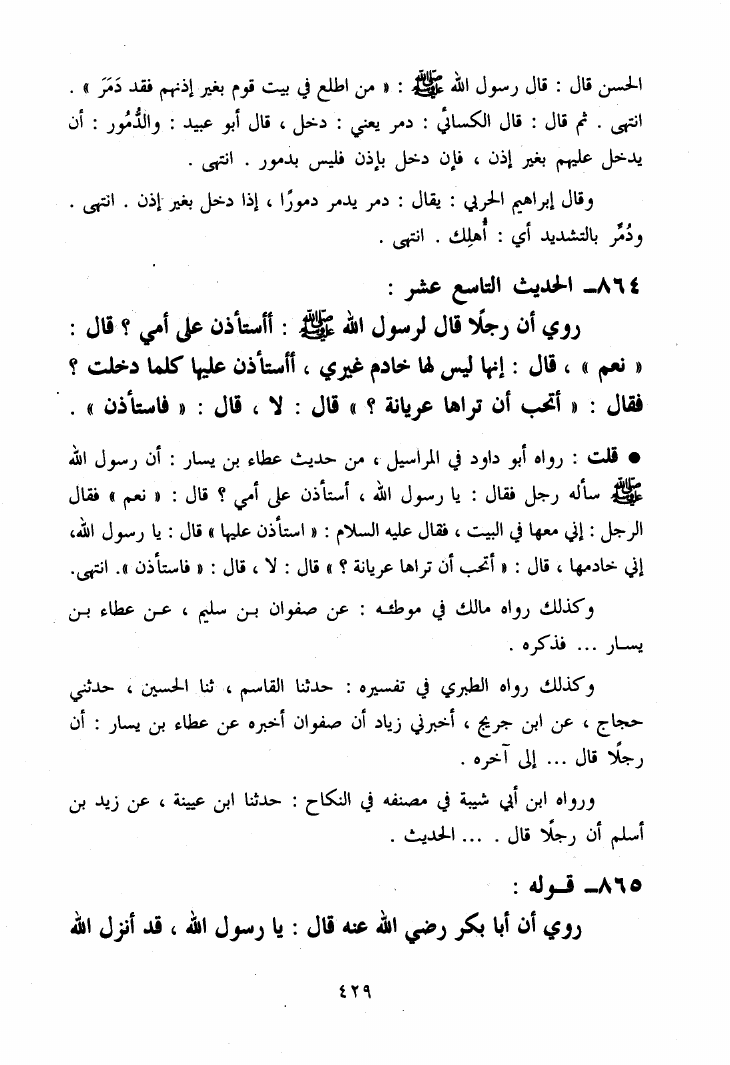 الحسن قال : قال رسول الله ﷺ : « من اطلع في بيت قوم بغير إذنهم فقد دَمَرَ » .
انتهى . ثم قال : قال الكسائي : دمر يعني : دخل ، قال أبو عبيد : والدُّمُور : أن
يدخل عليهم بغير إذن ، فإن دخل بإذن فليس بدمور . انتهى .
وقال إبراهيم الحربي : يقال : دمر يدمر دمورًا ، إذا دخل بغير إذن . انتهى .
ودُمِّر بالتشديد أي : أُهلِك . انتهى .
٨٦٤ـ الحديث التاسع عشر :
روي أن رجلًا قال لرسول الله ﷺ : أأستأذن على أمي ؟ قال :
« نعم » ، قال : إنها ليس لها خادم غيري ، أأستأذن عليها كلما دخلت ؟
فقال : « أتحب أن تراها عريانة ؟ » قال : لا ، قال : « فاستأذن » .
● قلت : رواه أبو داود في المراسيل ، من حديث عطاء بن يسار : أن رسول الله
ﷺ سأله رجل فقال : يا رسول الله ، أستأذن على أمي ؟ قال : « نعم » فقال
الرجل : إني معها في البيت ، فقال عليه السلام : « استأذن عليها » قال : يا رسول الله،
إني خادمها ، قال : « أتحب أن تراها عريانة ؟ » قال : لا ، قال : « فاستأذن ». انتهى.
وكذلك رواه مالك في موطئـه : عن صفوان بـن سليم ، عـن عطاء بـن
يسـار ... فذكره .
وكذلك رواه الطبري في تفسيره : حدثنا القاسم ، ثنا الحسين ، حدثني
حجاج ، عن ابن جريج ، أخبرني زياد أن صفوان أخبره عن عطاء بن يسار : أن
رجلًا قال ... إلى آخره .
ورواه ابن أبي شيبة في مصنفه في النكاح : حدثنا ابن عيينة ، عن زيد بن
أسلم أن رجلًا قال . ... الحديث .
٨٦٥ـ قـوله :
روي أن أبا بكر رضي الله عنه قال : يا رسول الله ، قد أنزل الله
٤٢٩